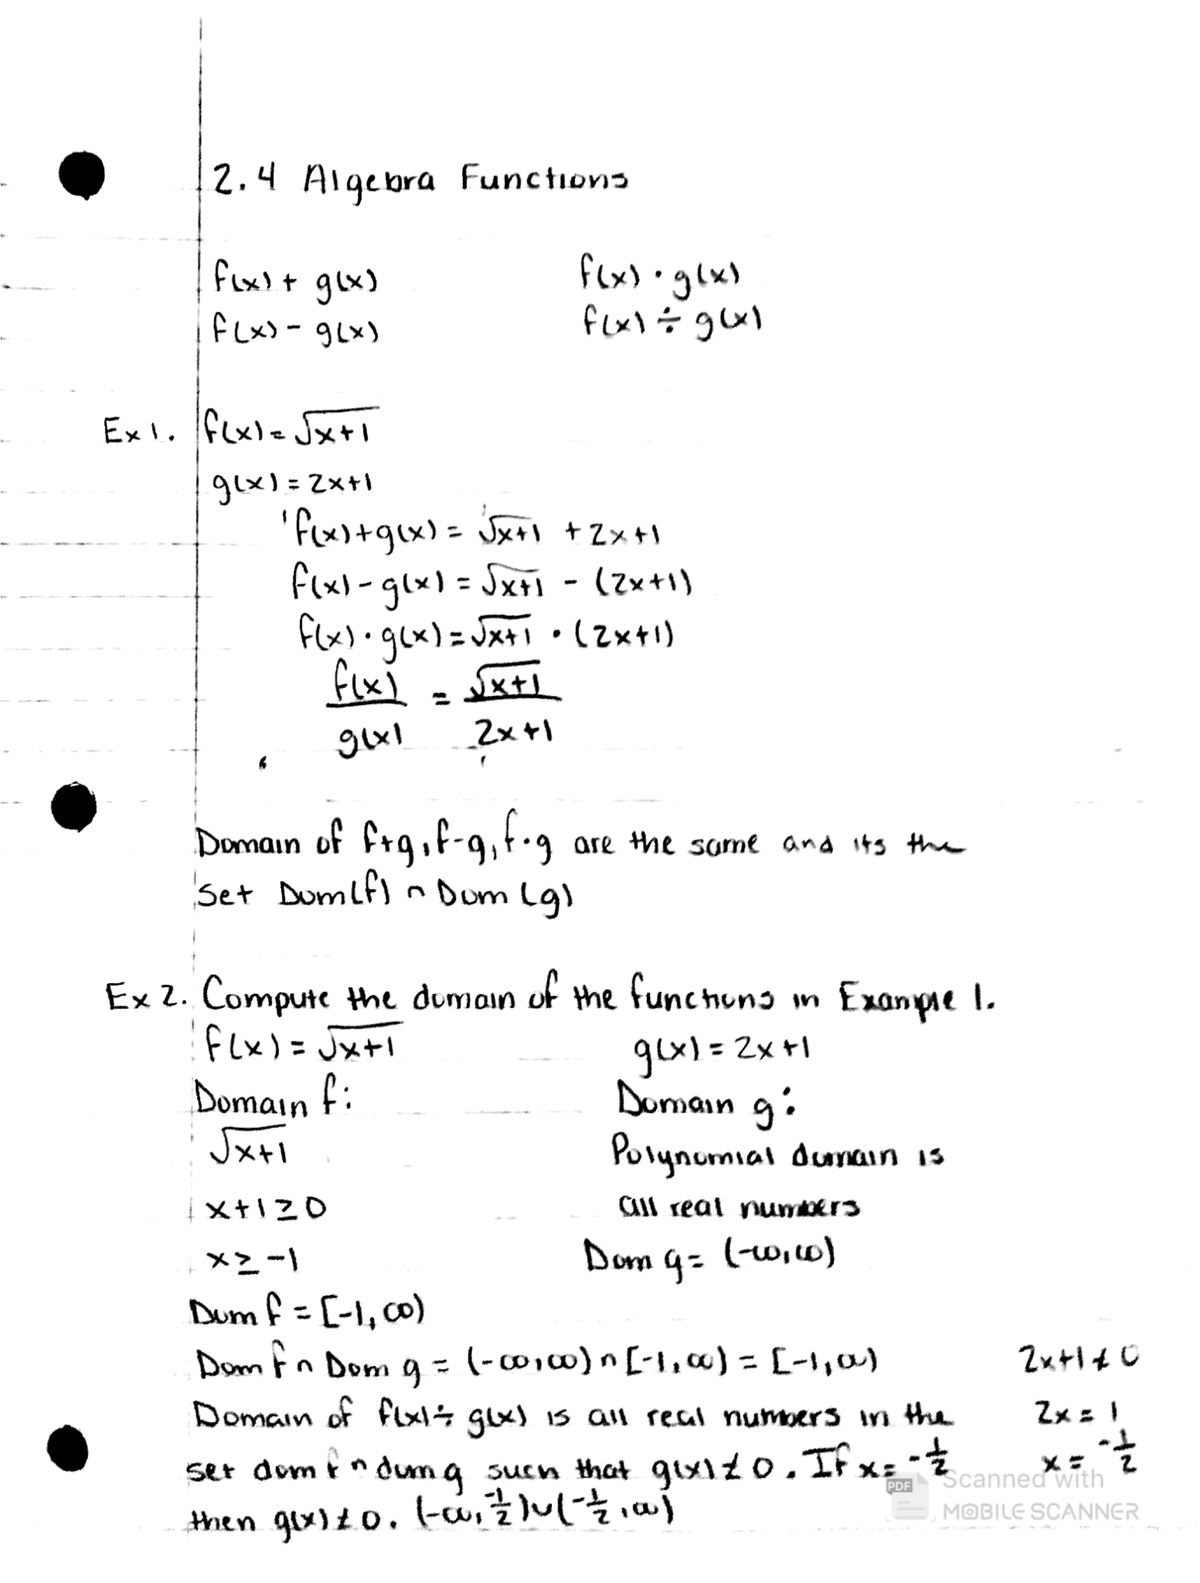 2.4 Algebra Functions
f(x) + g(x)
f(x) · g(x)
f(x) - g(x)
f(x) ÷ g(x)
Ex 1. f(x) = √x+1
g(x) = 2x+1
f(x)+g(x) = √x+1 + 2x+1
f(x) - g(x) = √x+1 - (2x+1)
f(x) · g(x) = √x+1 · (2x+1)
f(x)/g(x) = √x+1/2x+1
Domain of f+g, f-g, f·g are the same and its the
Set Dom(f) ∩ Dom (g)
Ex 2. Compute the domain of the functions in Example 1.
f(x) = √x+1
g(x) = 2x+1
Domain f:
Domain g:
√x+1
Polynomial domain is
x+1≥0
all real numbers
x≥ -1
Dom g = (-∞,∞)
Dom f = [-1, ∞)
Dom f ∩ Dom g = (-∞,∞) ∩ [-1,∞) = [-1,∞)
2x+1≠0
Domain of f(x) ÷ g(x) is all real numbers in the
2x = 1
set dom f ∩ dom g such that g(x)≠0. If x= -1/2
x = -1/2
then g(x)≠0. (-∞, -1/2)∪(-1/2, ∞)
PDF Scanned with
MOBILE SCANNER